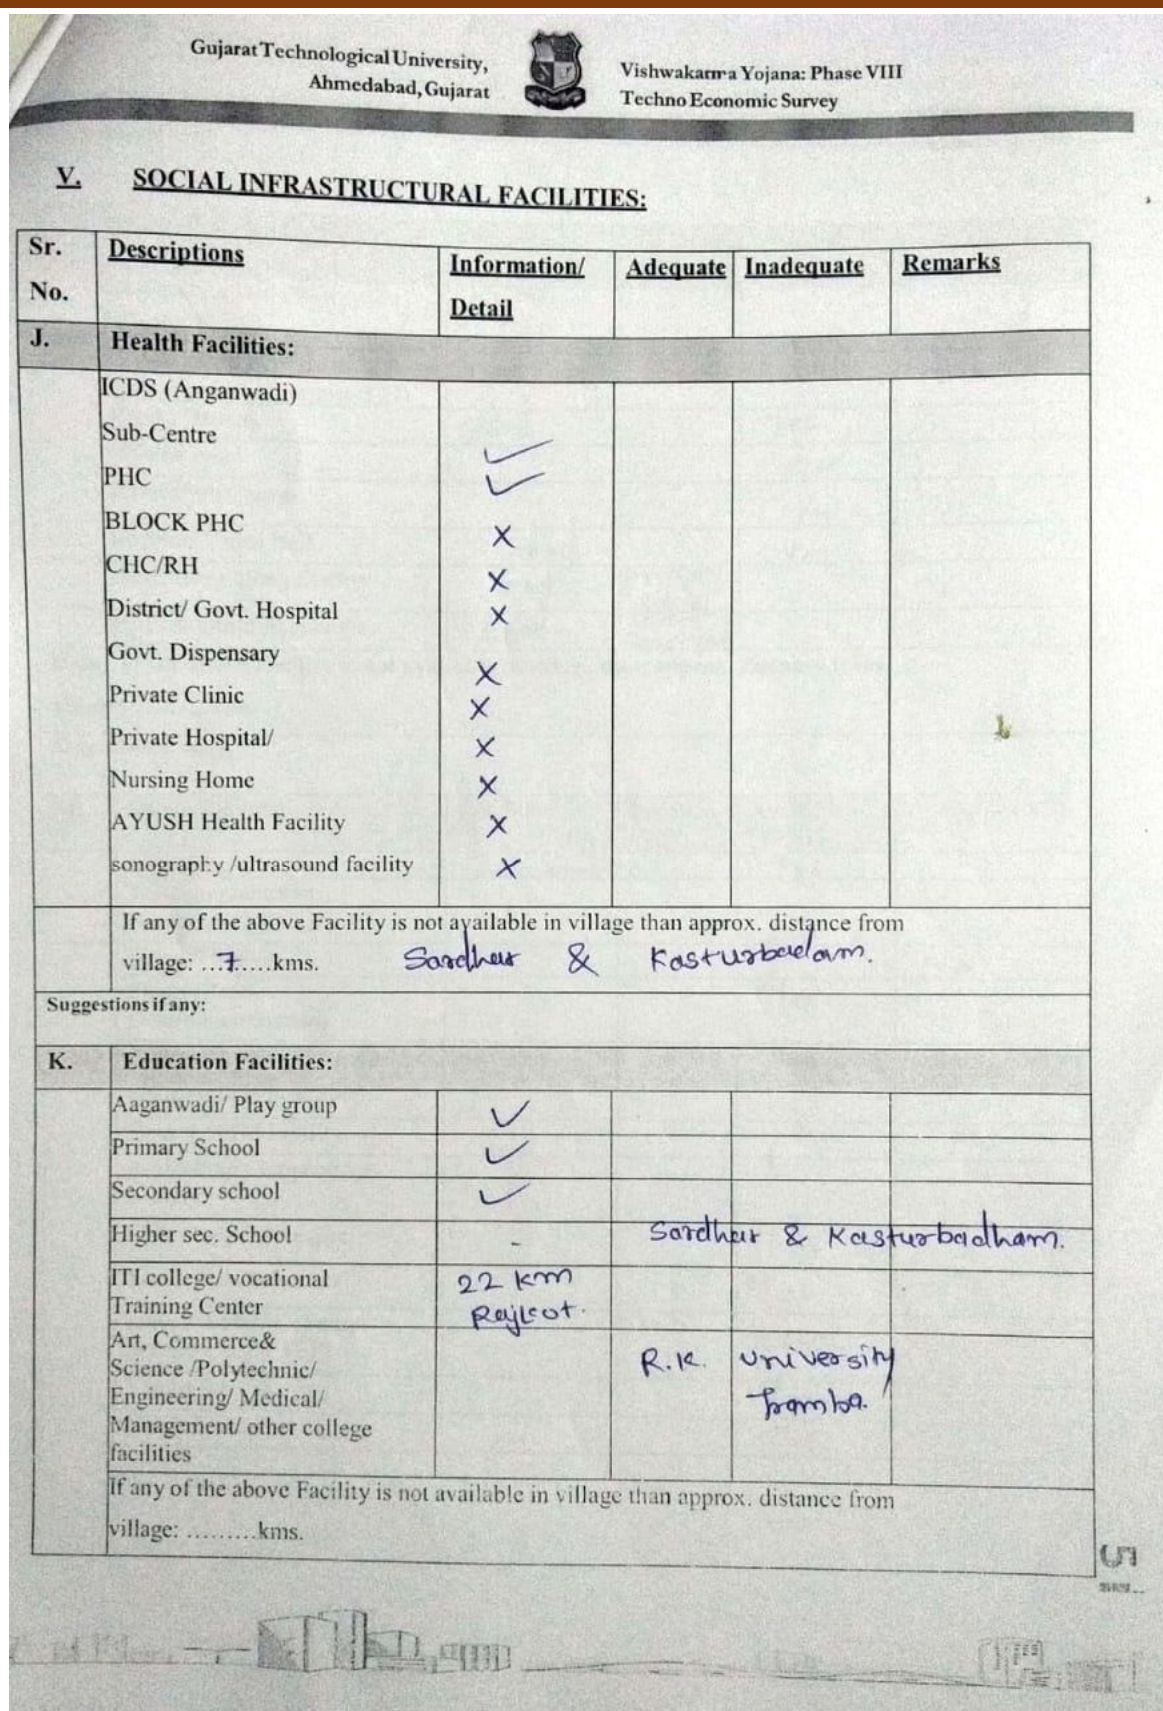 Gujarat Technological University,
Ahmedabad, Gujarat
Vishwakarma Yojana: Phase VIII
Techno Economic Survey
V. SOCIAL INFRASTRUCTURAL FACILITIES:
Sr. No. Descriptions Information/ Detail Adequate Inadequate Remarks
J. Health Facilities:
ICDS (Anganwadi)
Sub-Centre ✓
PHC ✓
BLOCK PHC X
CHC/RH X
District/ Govt. Hospital X
Govt. Dispensary X
Private Clinic X
Private Hospital/ X
Nursing Home X
AYUSH Health Facility X
sonography /ultrasound facility X
If any of the above Facility is not available in village than approx. distance from
village: ...7.....kms. Sardhar & Kasturbadam.
Suggestions if any:
K. Education Facilities:
Aaganwadi/ Play group ✓
Primary School ✓
Secondary school ✓
Higher sec. School - Sardhar & Kasturbadham.
ITI college/ vocational 22 km
Training Center Rajkot.
Art, Commerce&
Science /Polytechnic/ R.K. University
Engineering/ Medical/ Tramba.
Management/ other college
facilities
If any of the above Facility is not available in village than approx. distance from
village: .........kms.
5